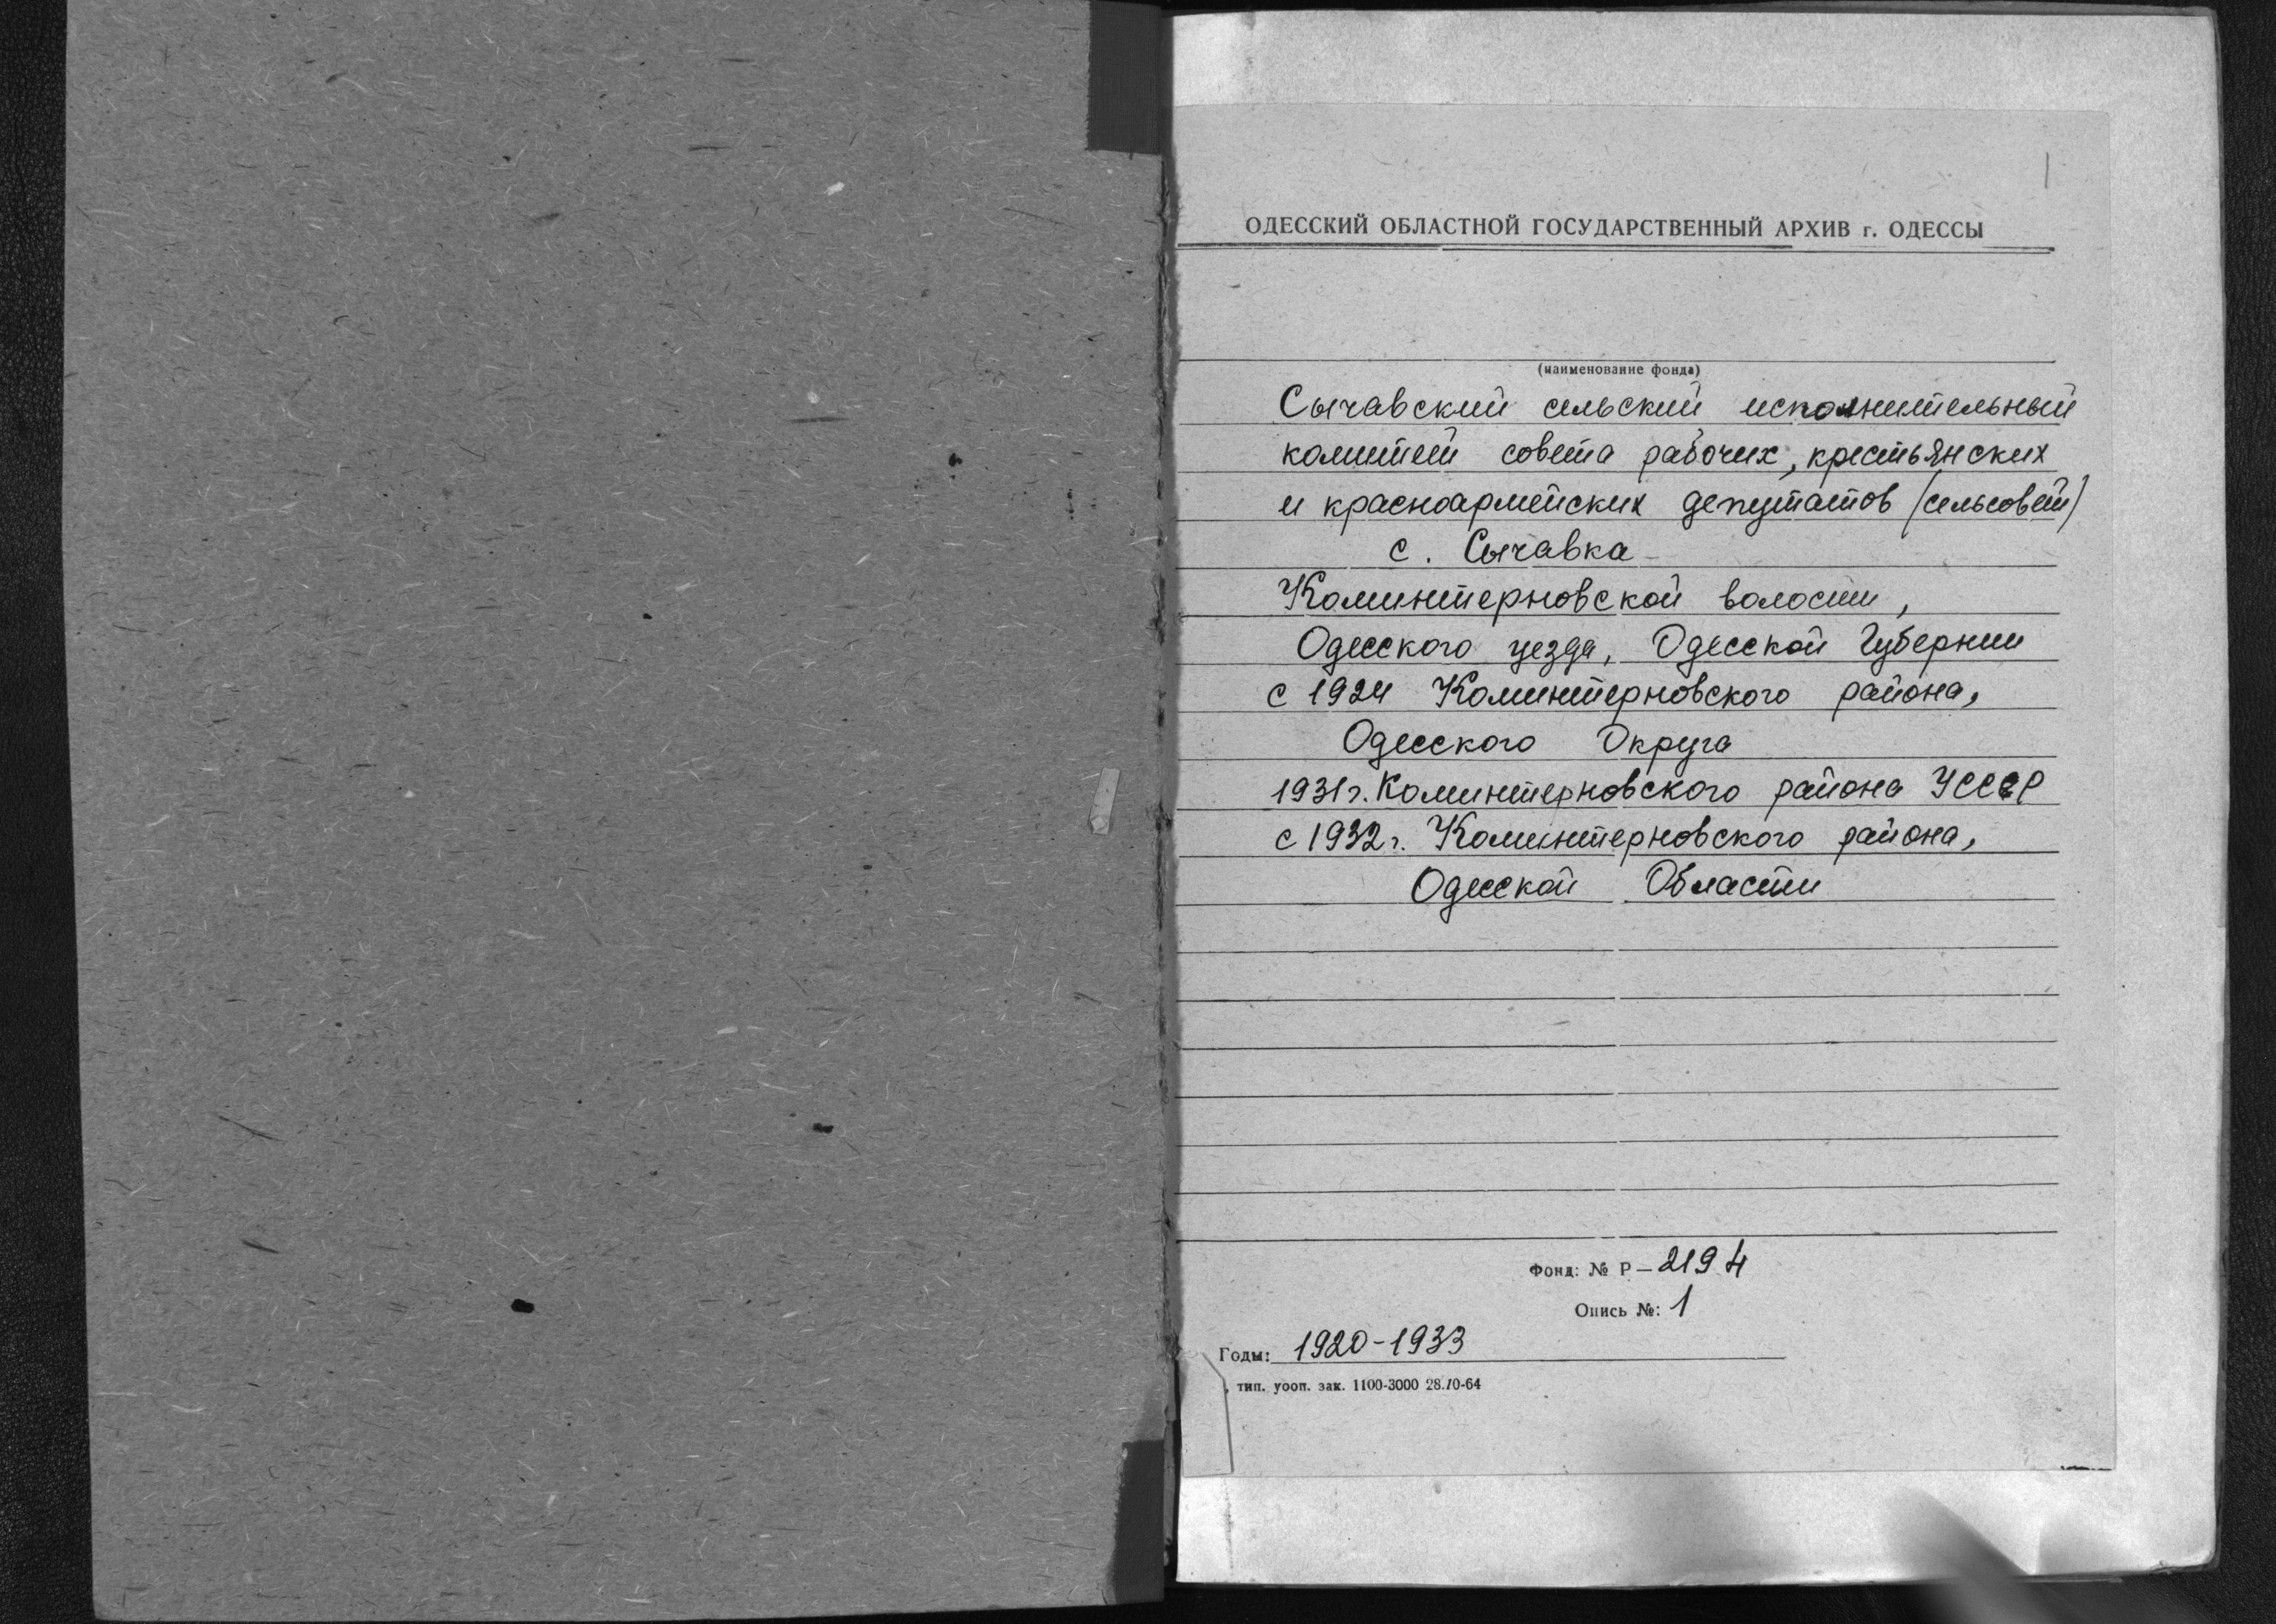 1
ОДЕССКИЙ ОБЛАСТНОЙ ГОСУДАРСТВЕННЫЙ АРХИВ г. ОДЕССЫ
(наименование фонда)
Сычавский сельский исполнительный
комитет совета рабочих, крестьянских
и красноармейских депутатов (сельсовет)
с. Сычавка
Коминтерновской волости,
Одесского уезда, Одесской Губернии
с 1924 Коминтерновского района,
Одесского Округа
1931г. Коминтерновского района УССР
с 1932г. Коминтерновского района,
Одесской Области
Фонд: № Р-2194
Опись №: 1
Годы: 1920-1933
, тип. уооп. зак. 1100-3000 28.10-64